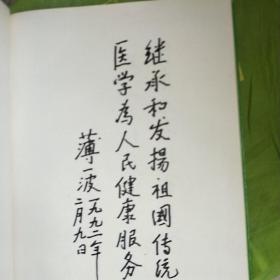 继承和发揚祖國传统
医学為人民健康服务
薄一波
一九九二年
二月九日